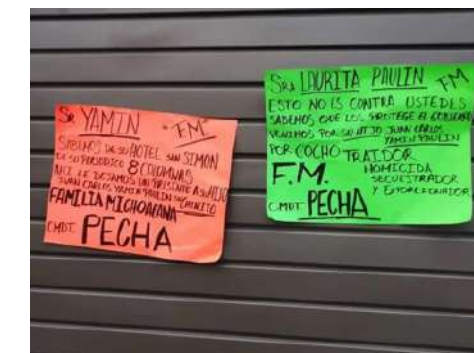 Sr YAMIN "FM"
SABEMOS DE SU HOTEL SAN SIMON
DE SU PERIODICO 8 COLUMNAS
AHI LE DEJAMOS UN PRESENTE A SU HIJO
JUAN CARLOS YAMIN PAULIN
FAMILIA MICHOACANA
CMDT. PECHA
Sra LAURITA PAULIN FM
ESTO NO ES CONTRA USTEDES
SABEMOS QUE LOS PROTEGE EL GOBIERNO
VENIMOS POR SU HIJO JUAN CARLOS
YAMIN PAULIN
POR COCHO TRAIDOR
F.M. HOMICIDA
SECUESTRADOR
Y EXTORCIONADOR
CMDT. PECHA